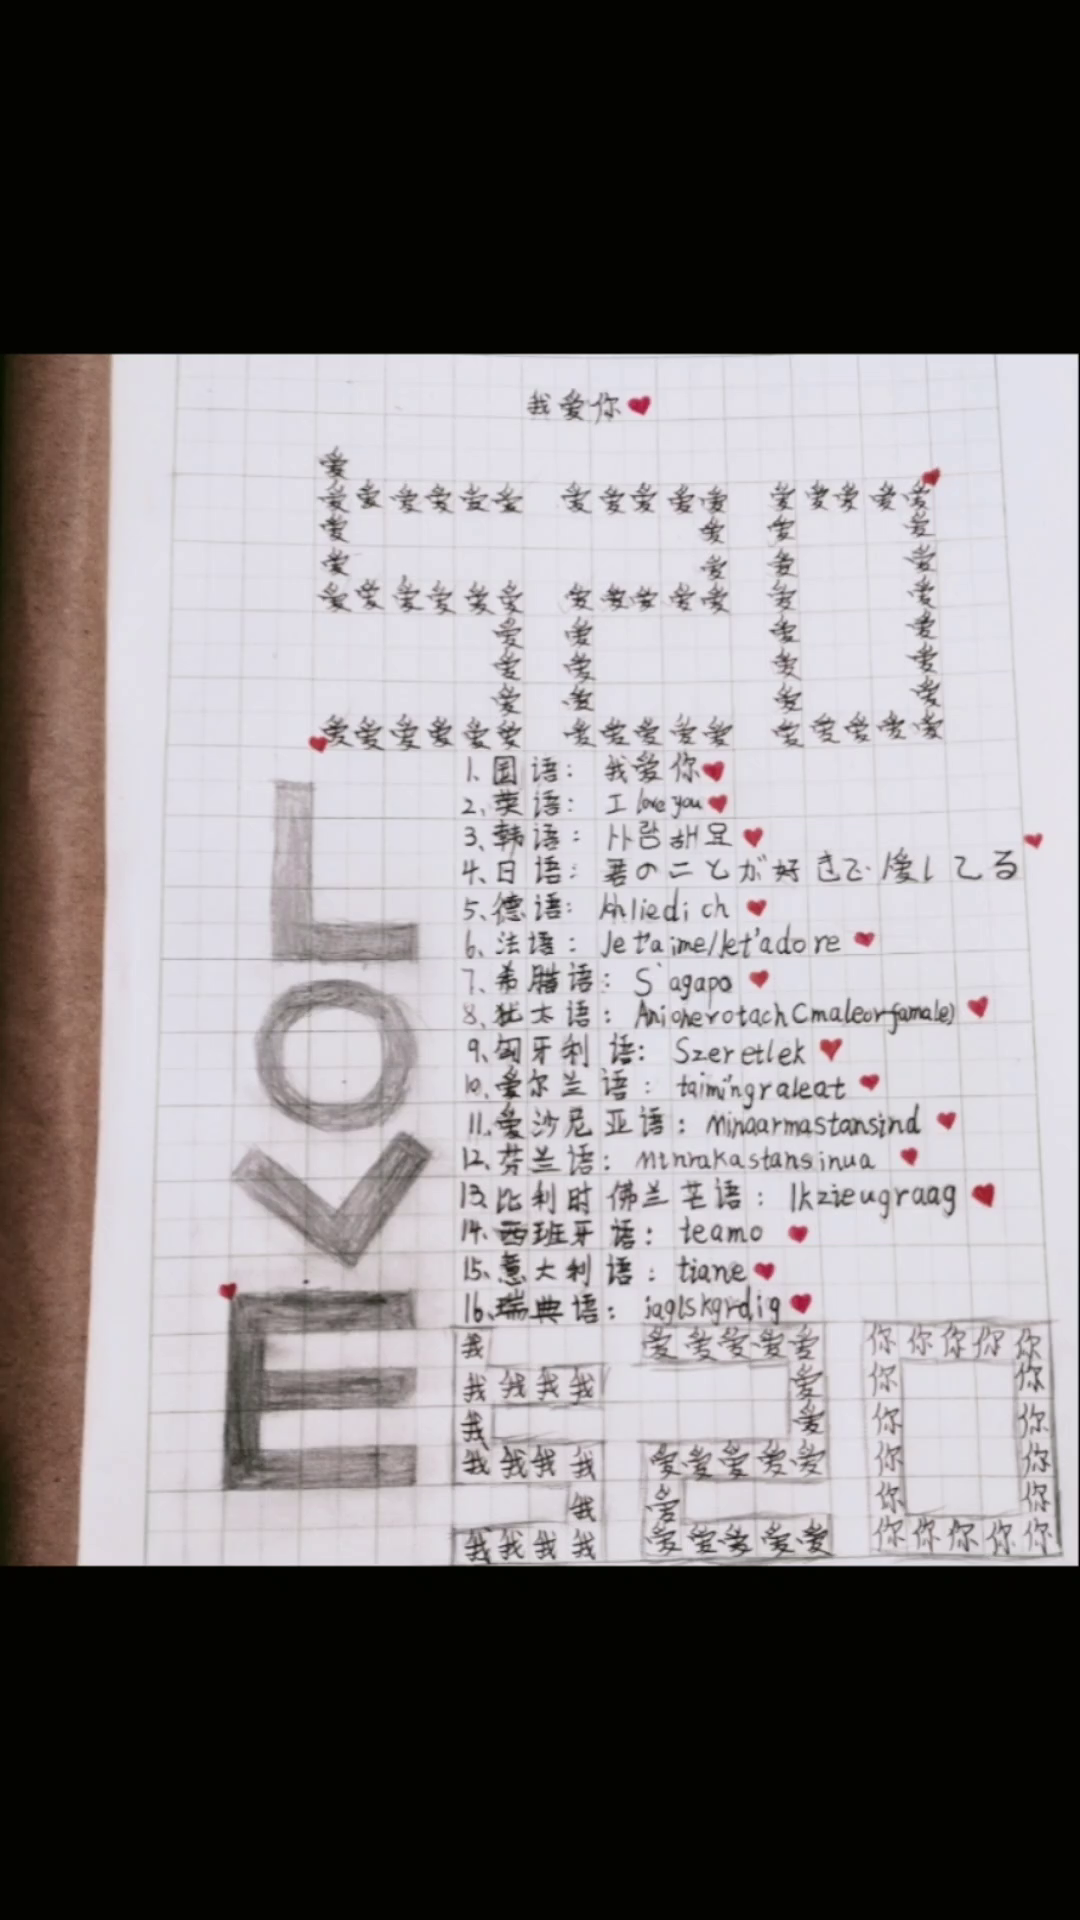 我爱你
爱
爱爱爱爱爱爱 爱爱爱爱爱 爱爱爱爱爱
爱 爱 爱 爱
爱 爱 爱 爱
爱爱爱爱爱爱 爱爱爱爱爱 爱 爱
爱 爱 爱 爱
爱 爱 爱 爱
爱 爱 爱 爱
爱爱爱爱爱爱 爱爱爱爱爱 爱爱爱爱爱
LOVE
1、国语: 我爱你
2、英语: I love you
3、韩语: 사랑해요
4、日语: 君のことが好きで愛してる
5、德语: Ichliedich
6、法语: Je t'aime/Jet'adore
7、希腊语: S'agapo
8、犹太语: AnioherotachCmaleorfamale)
9、匈牙利语: Szeretlek
10、爱尔兰语: taimingraleat
11、爱沙尼亚语: Minaarmastansind
12、芬兰语: Minrakastansinua
13、比利时佛兰芒语: Ikzieugraag
14、西班牙语: teamo
15、意大利语: tiane
16、瑞典语: jaglskgrdig
我 爱爱爱爱爱 你你你你你
我我我我 爱 你 你
我 爱 你 你
我我我我 爱爱爱爱爱 你 你
我 爱 你 你
我我我我 爱爱爱爱爱 你你你你你